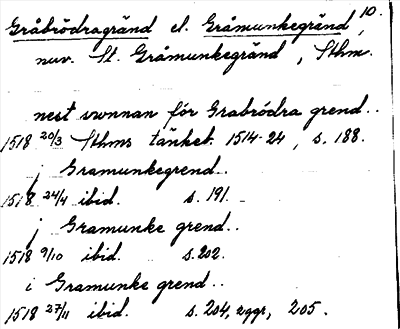 Gråbrödragränd el. Gråmunkegränd, 10.
nuv. St. Gråmunkegränd, Sthm.
nest swnnan för Grabrödra grend..
1518 20/3 Sthms tänkeb. 1514-24, s. 188.
j Gramunkegrend..
1518 24/4 ibid. s. 191.
j Gramunke grend..
1518 9/10 ibid. s. 202.
i Gramunke grend..
1518 27/11 ibid. s. 204, 205.